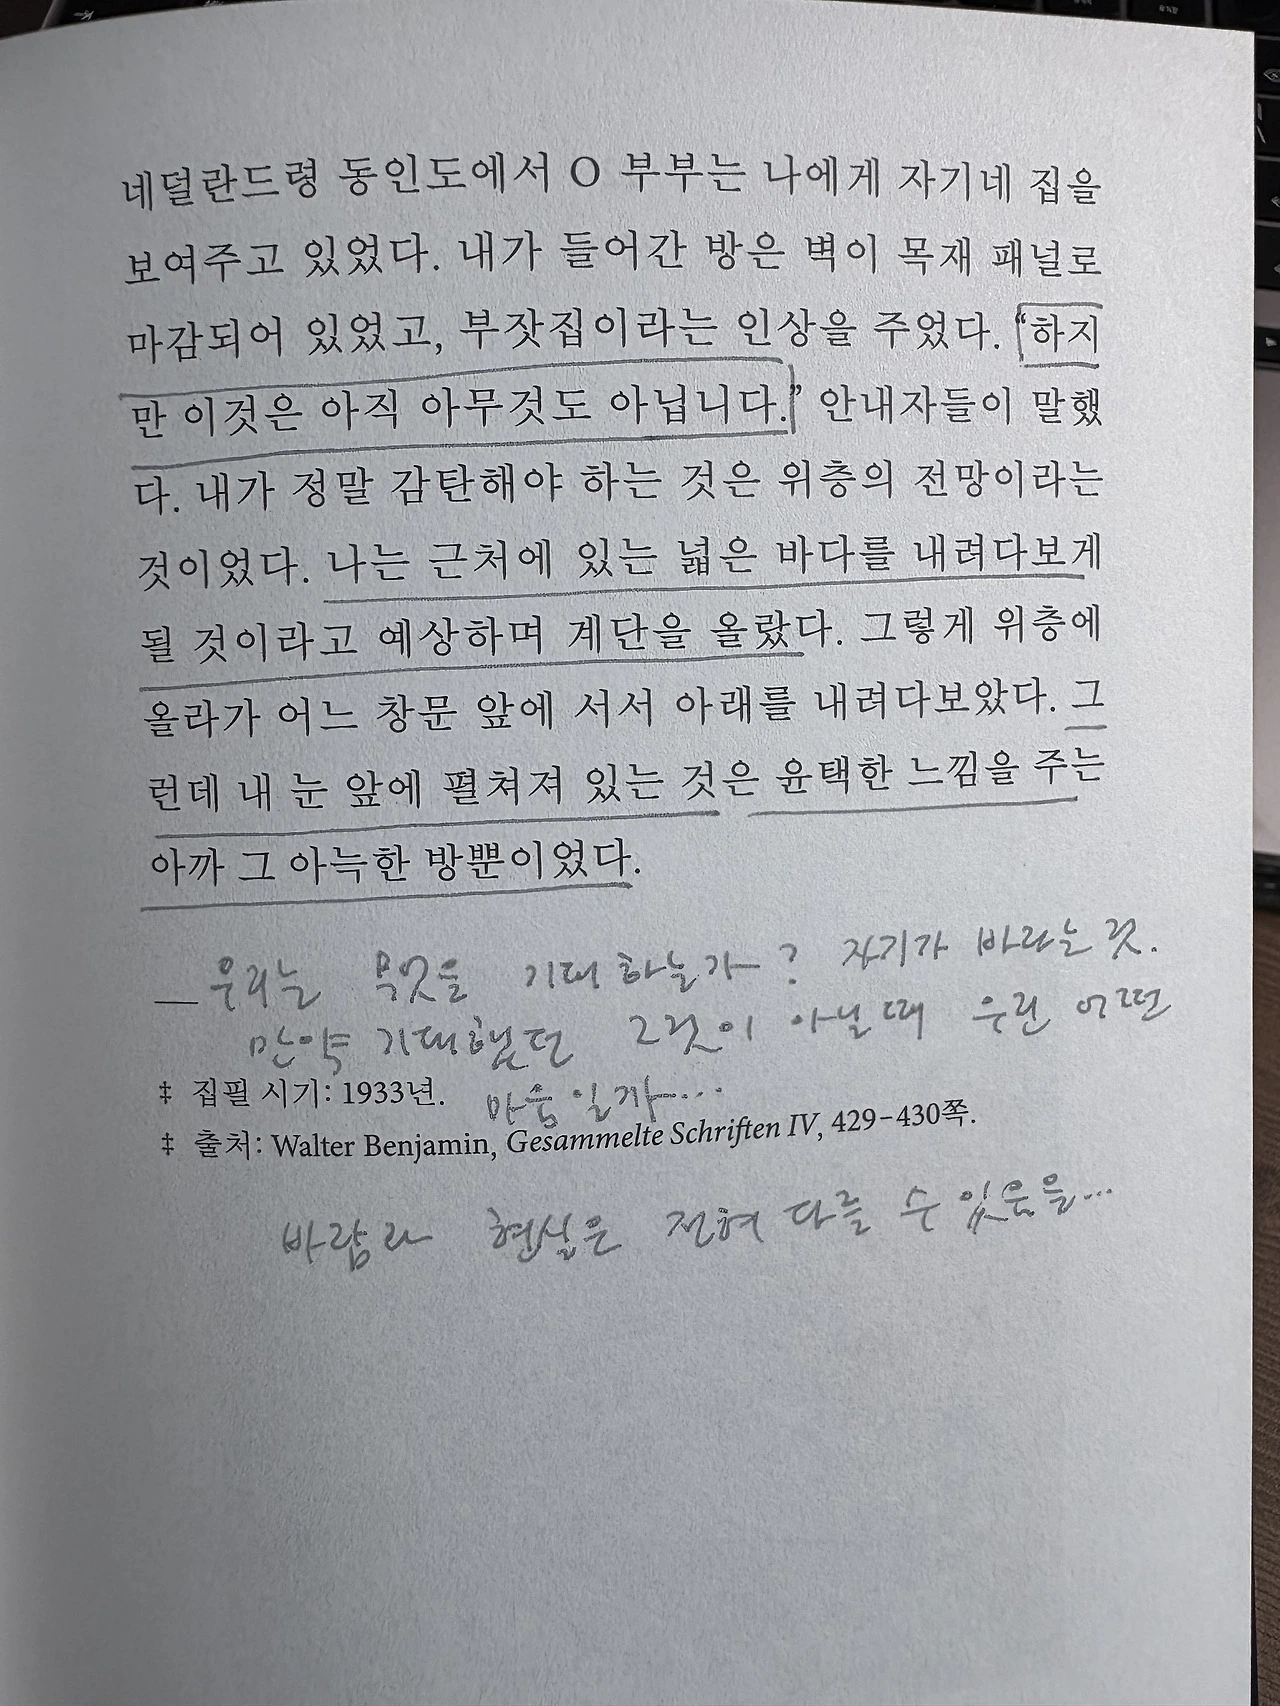 네덜란드령 동인도에서 O 부부는 나에게 자기네 집을
보여주고 있었다. 내가 들어간 방은 벽이 목재 패널로
마감되어 있었고, 부잣집이라는 인상을 주었다. “하지
만 이것은 아직 아무것도 아닙니다.” 안내자들이 말했
다. 내가 정말 감탄해야 하는 것은 위층의 전망이라는
것이었다. 나는 근처에 있는 넓은 바다를 내려다보게
될 것이라고 예상하며 계단을 올랐다. 그렇게 위층에
올라가 어느 창문 앞에 서서 아래를 내려다보았다. 그
런데 내 눈 앞에 펼쳐져 있는 것은 윤택한 느낌을 주는
아까 그 아늑한 방뿐이었다.
— 우리는 무엇을 기대하는가? 자기가 바라는 것.
만약 기대했던 그것이 아닐 때 우린 어떤
‡ 집필 시기: 1933년. 마음일까...
‡ 출처: Walter Benjamin, Gesammelte Schriften IV, 429–430쪽.
바람과 현실은 전혀 다를 수 있음을...